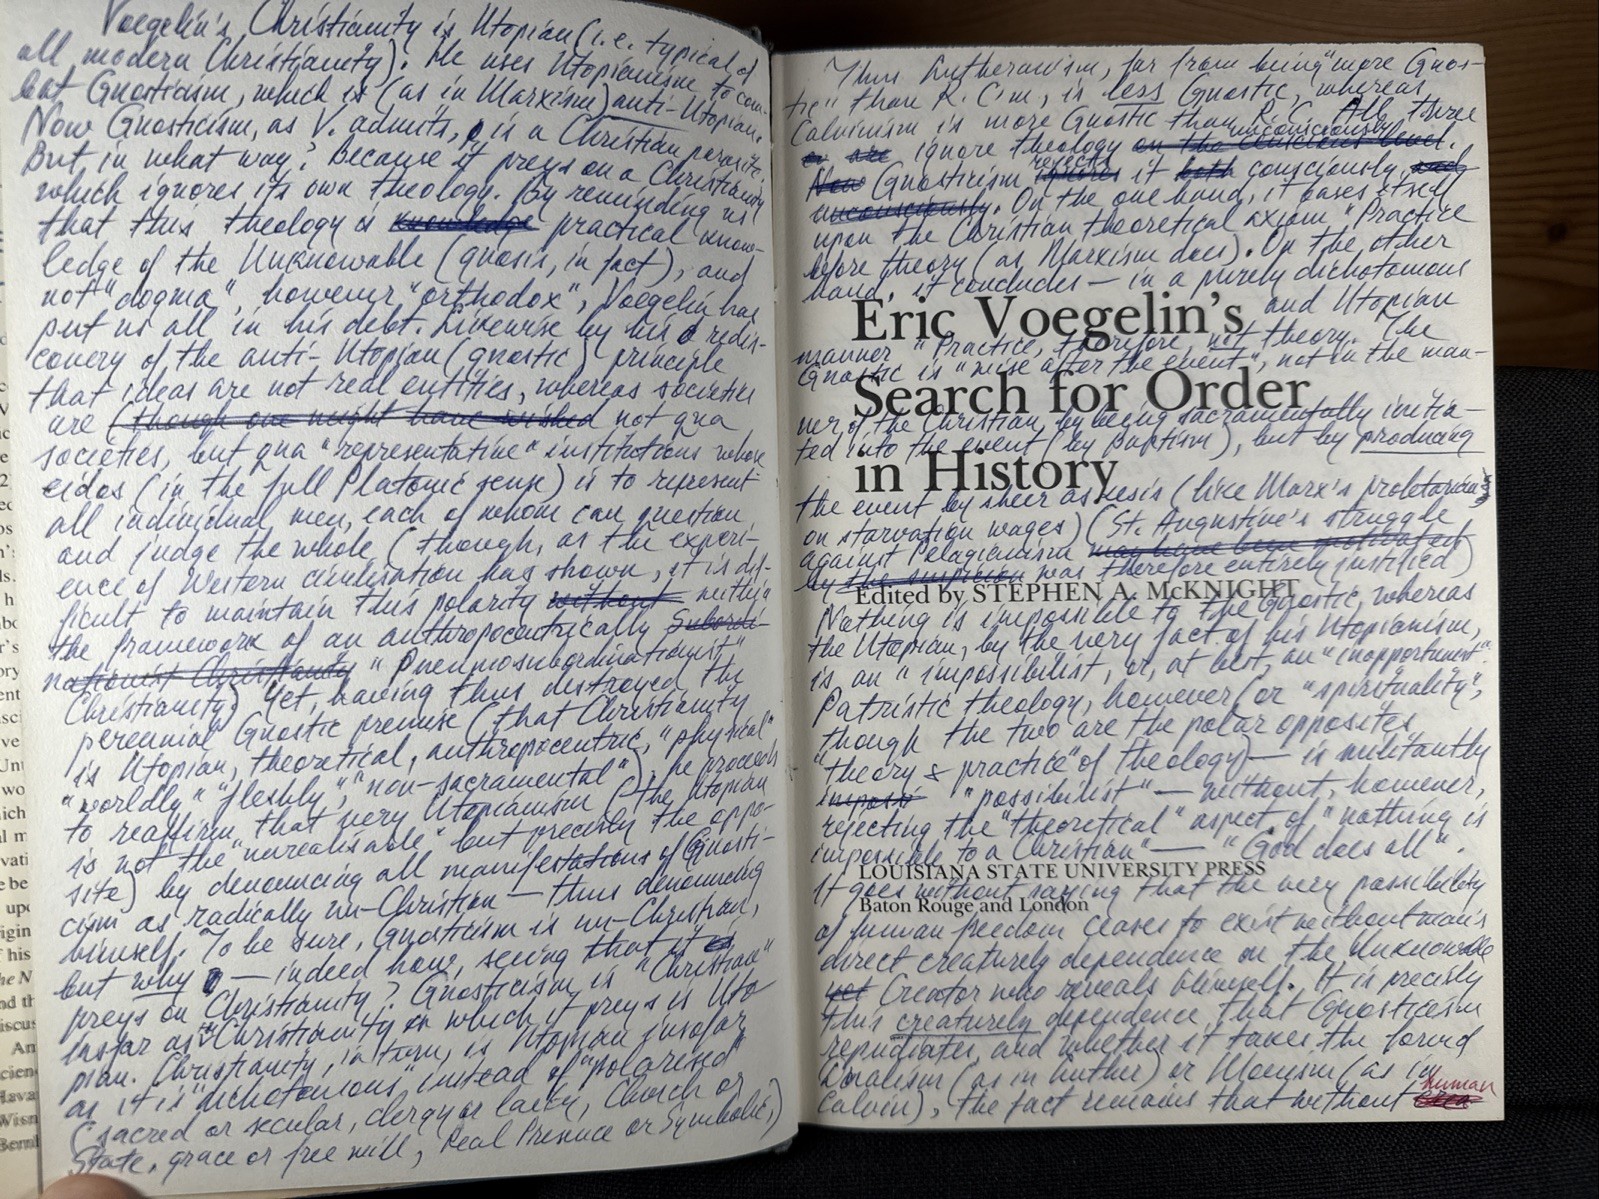 Voegelin's Christianity is Utopian (i.e. typical of
all modern Christianity). He uses Utopianism to com-
bat Gnosticism, which is (as in Marxism) anti-Utopian.
Now Gnosticism, as V. admits, is a Christian parasite.
But in what way? Because it preys on a Christianity
which ignores its own theology. By reminding us
that this theology is knowledge practical know-
ledge of the Unknowable (gnosis, in fact), and
not "dogma", however "orthodox", Voegelin has
put us all in his debt. Likewise by his redis-
covery of the anti-Utopian (gnostic) principle
that ideas are not real entities, whereas societies
are (though one might have wished not qua
societies, but qua "representative" institutions whose
eidos (in the full Platonic sense) is to represent
all individual men, each of whom can question
and judge the whole (though, as the experi-
ence of Western civilisation has shown, it is dif-
ficult to maintain this polarity without within
the framework of an anthropocentrically Subordi-
nationist Christianity "Pneumosubordinationist"
Christianity) Yet, having thus destroyed the
perennial Gnostic premise (that Christianity
is Utopian, theoretical, anthropocentric, "physical"
"worldly" "fleshly", "non-sacramental"), he proceeds
to reaffirm that very Utopianism (the Utopian
is not the "unrealisable" but precisely the oppo-
site) by denouncing all manifestations of Gnosti-
cism as radically un-Christian — thus denouncing
himself. To be sure, Gnosticism is un-Christian,
but why — indeed how, seeing that it
preys on Christianity? Gnosticism is "Christian"
insofar as the Christianity on which it preys is Uto-
pian. Christianity, in turn, is Utopian insofar
as it is "dichotomous" instead of "polarised"
(sacred or secular, clergy or laity, Church or
State, grace or free will, Real Presence or Symbolic,)
Thus Lutheranism, far from being "more Gnos-
tic" than R. C'm, is less Gnostic, whereas
Calvinism is more Gnostic than R.C. All three
are ignore theology unconsciously on the conscious level.
Now Gnosticism rejects ignores it both consciously, and
unconsciously. On the one hand, it bases itself
upon the Christian theoretical axiom "Practice
before theory (as Marxism does). On the other
hand, it concludes — in a purely dichotomous
and Utopian
Eric Voegelin's
manner "Practice, therefore, not theory. The
Gnostic is "wise after the event", not in the man-
Search for Order
ner of the Christian, by being sacramentally initia-
ted into the event (by Baptism), but by producing
in History
the event by sheer askesis (like Marx's proletarian
on starvation wages) (St. Augustine's struggle
against Pelagianism may have been motivated
by the suspicion was therefore entirely justified)
Edited by STEPHEN A. McKNIGHT
Nothing is impossible to the Gnostic, whereas
the Utopian, by the very fact of his Utopianism,
is an "impossibilist, or, at best, an "inopportunist".
Patristic theology, however (or "spirituality",
though the two are the polar opposites
"theory & practice" of theology) — is militantly
imposs "possibilist" — without, however,
rejecting the "theoretical" aspect of "nothing is
impossible to a Christian" — "God does all".
LOUISIANA STATE UNIVERSITY PRESS
It goes without saying that the very possibility
Baton Rouge and London
of human freedom ceases to exist without man's
direct creaturely dependence on the Unknowable
yet Creator who reveals Himself. It is precisely
this creaturely dependence that Gnosticism
repudiates, and whether it takes the form of
Dualism (as in Luther) or Monism (as in
Calvin), the fact remains that without human